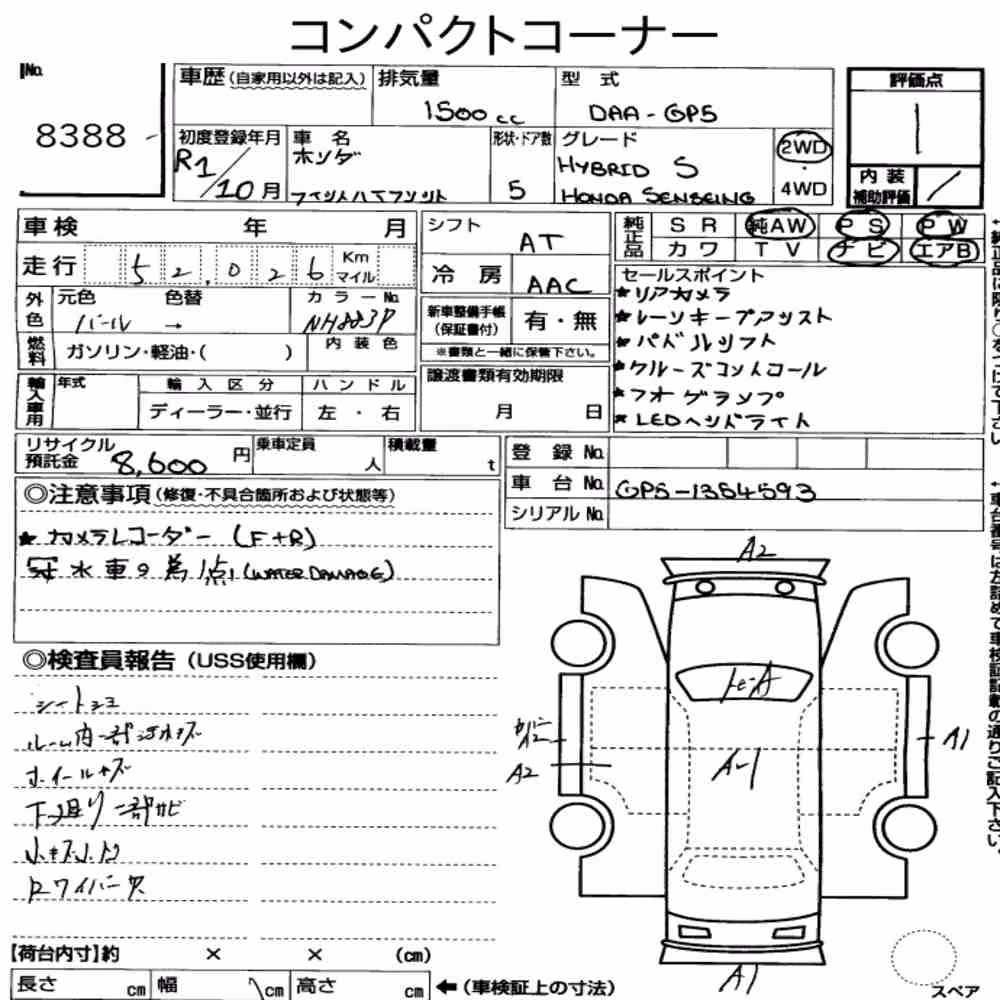 コンパクトコーナー
No. 8388
車歴（自家用以外は記入）
排気量 1500cc
型式 DAA-GP5
初度登録年月 R1/10月
車名 ホンダ フィットハイブリッド
形状・ドア数 5
グレード HYBRID S HONDA SENSEING
2WD・4WD
評価点 1
内装補助評価
車検 年 月
走行 52,026 Km マイル
外色 元色 パール 色替 → カラーNo. NH883P
燃料 ガソリン・軽油・（ ） 内装色
輸入車用 年式 輸入区分 ディーラー・並行 ハンドル 左・右
シフト AT
冷房 AAC
新車整備手帳（保証書付） 有・無
※書類と一緒に保管下さい。
譲渡書類有効期限 月 日
純正品 SR 純AW PS PW
カワ TV ナビ エアB
セールスポイント
★リアカメラ
★レーンキープアシスト
★パドルシフト
★クルーズコントロール
★フォグランプ
★LEDヘッドライト
リサイクル預託金 8,600円
乗車定員 人
積載量 t
登録No.
車台No. GP5-1364593
シリアルNo.
◎注意事項（修復・不具合箇所および状態等）
★カメラレコーダー（F+R）
冠水車の為1点!（WATER DAMAGE）
◎検査員報告（USS使用欄）
シートシミ
ルーム内一部汚れキズ
ホイールキズ
下廻り一部サビ
小キズ小凹
Rワイパー欠
A2
トビA
カバーA2
A2
A-1
A1
A1
スペア
【荷台内寸】約 × × （cm）
長さ cm 幅 cm 高さ cm ←（車検証上の寸法）
↑純正品に限り○をつけて下さい
↑車台番号は左詰めで車検証記載の通りご記入下さい。